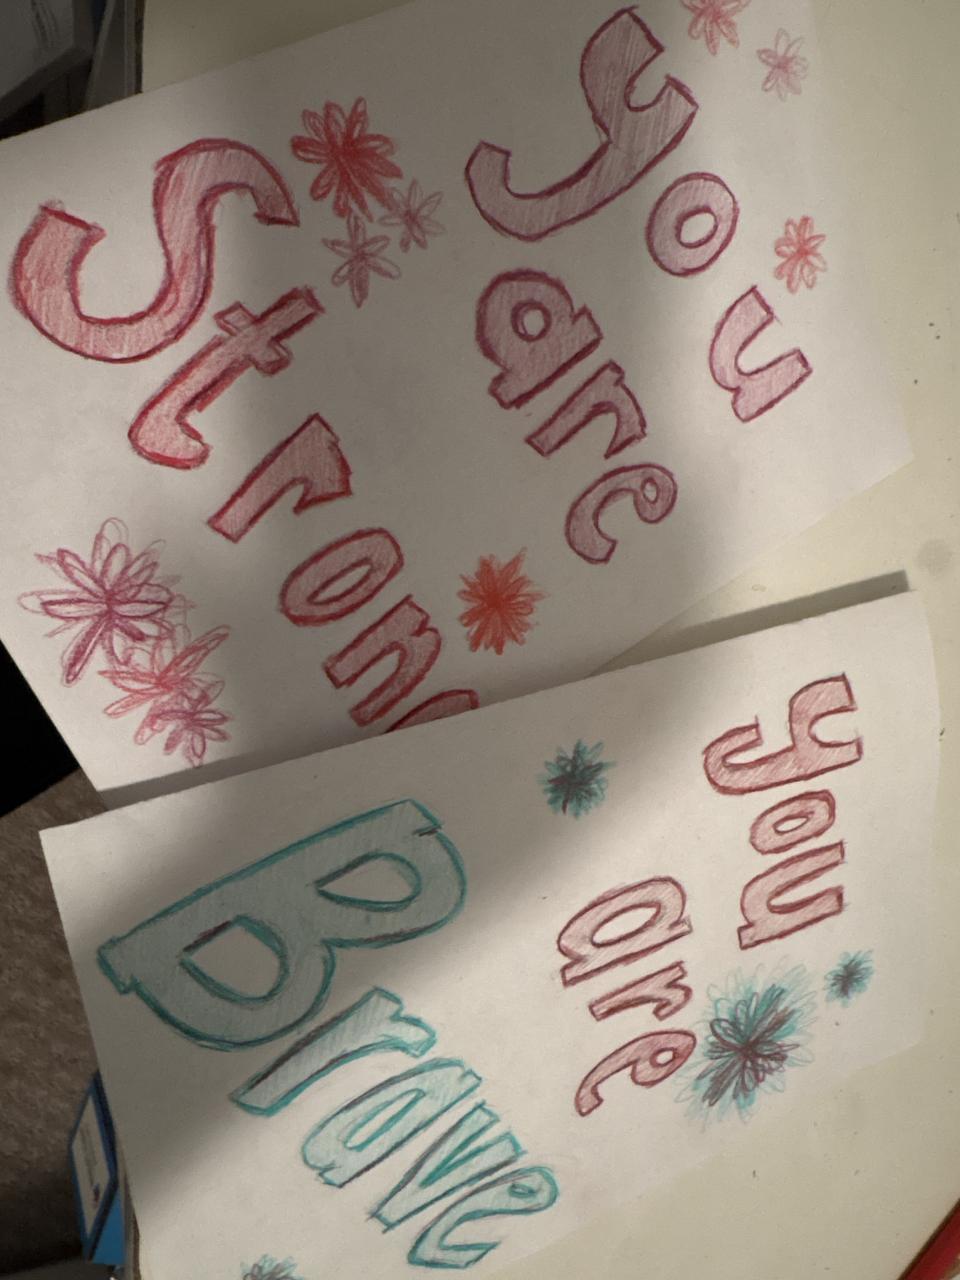 you
are
Stron
you
are
Brave